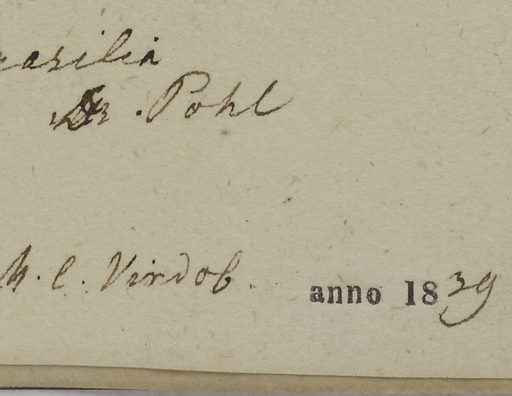 rasilia
Dr. Pohl
M. C. Vindob. anno 1839